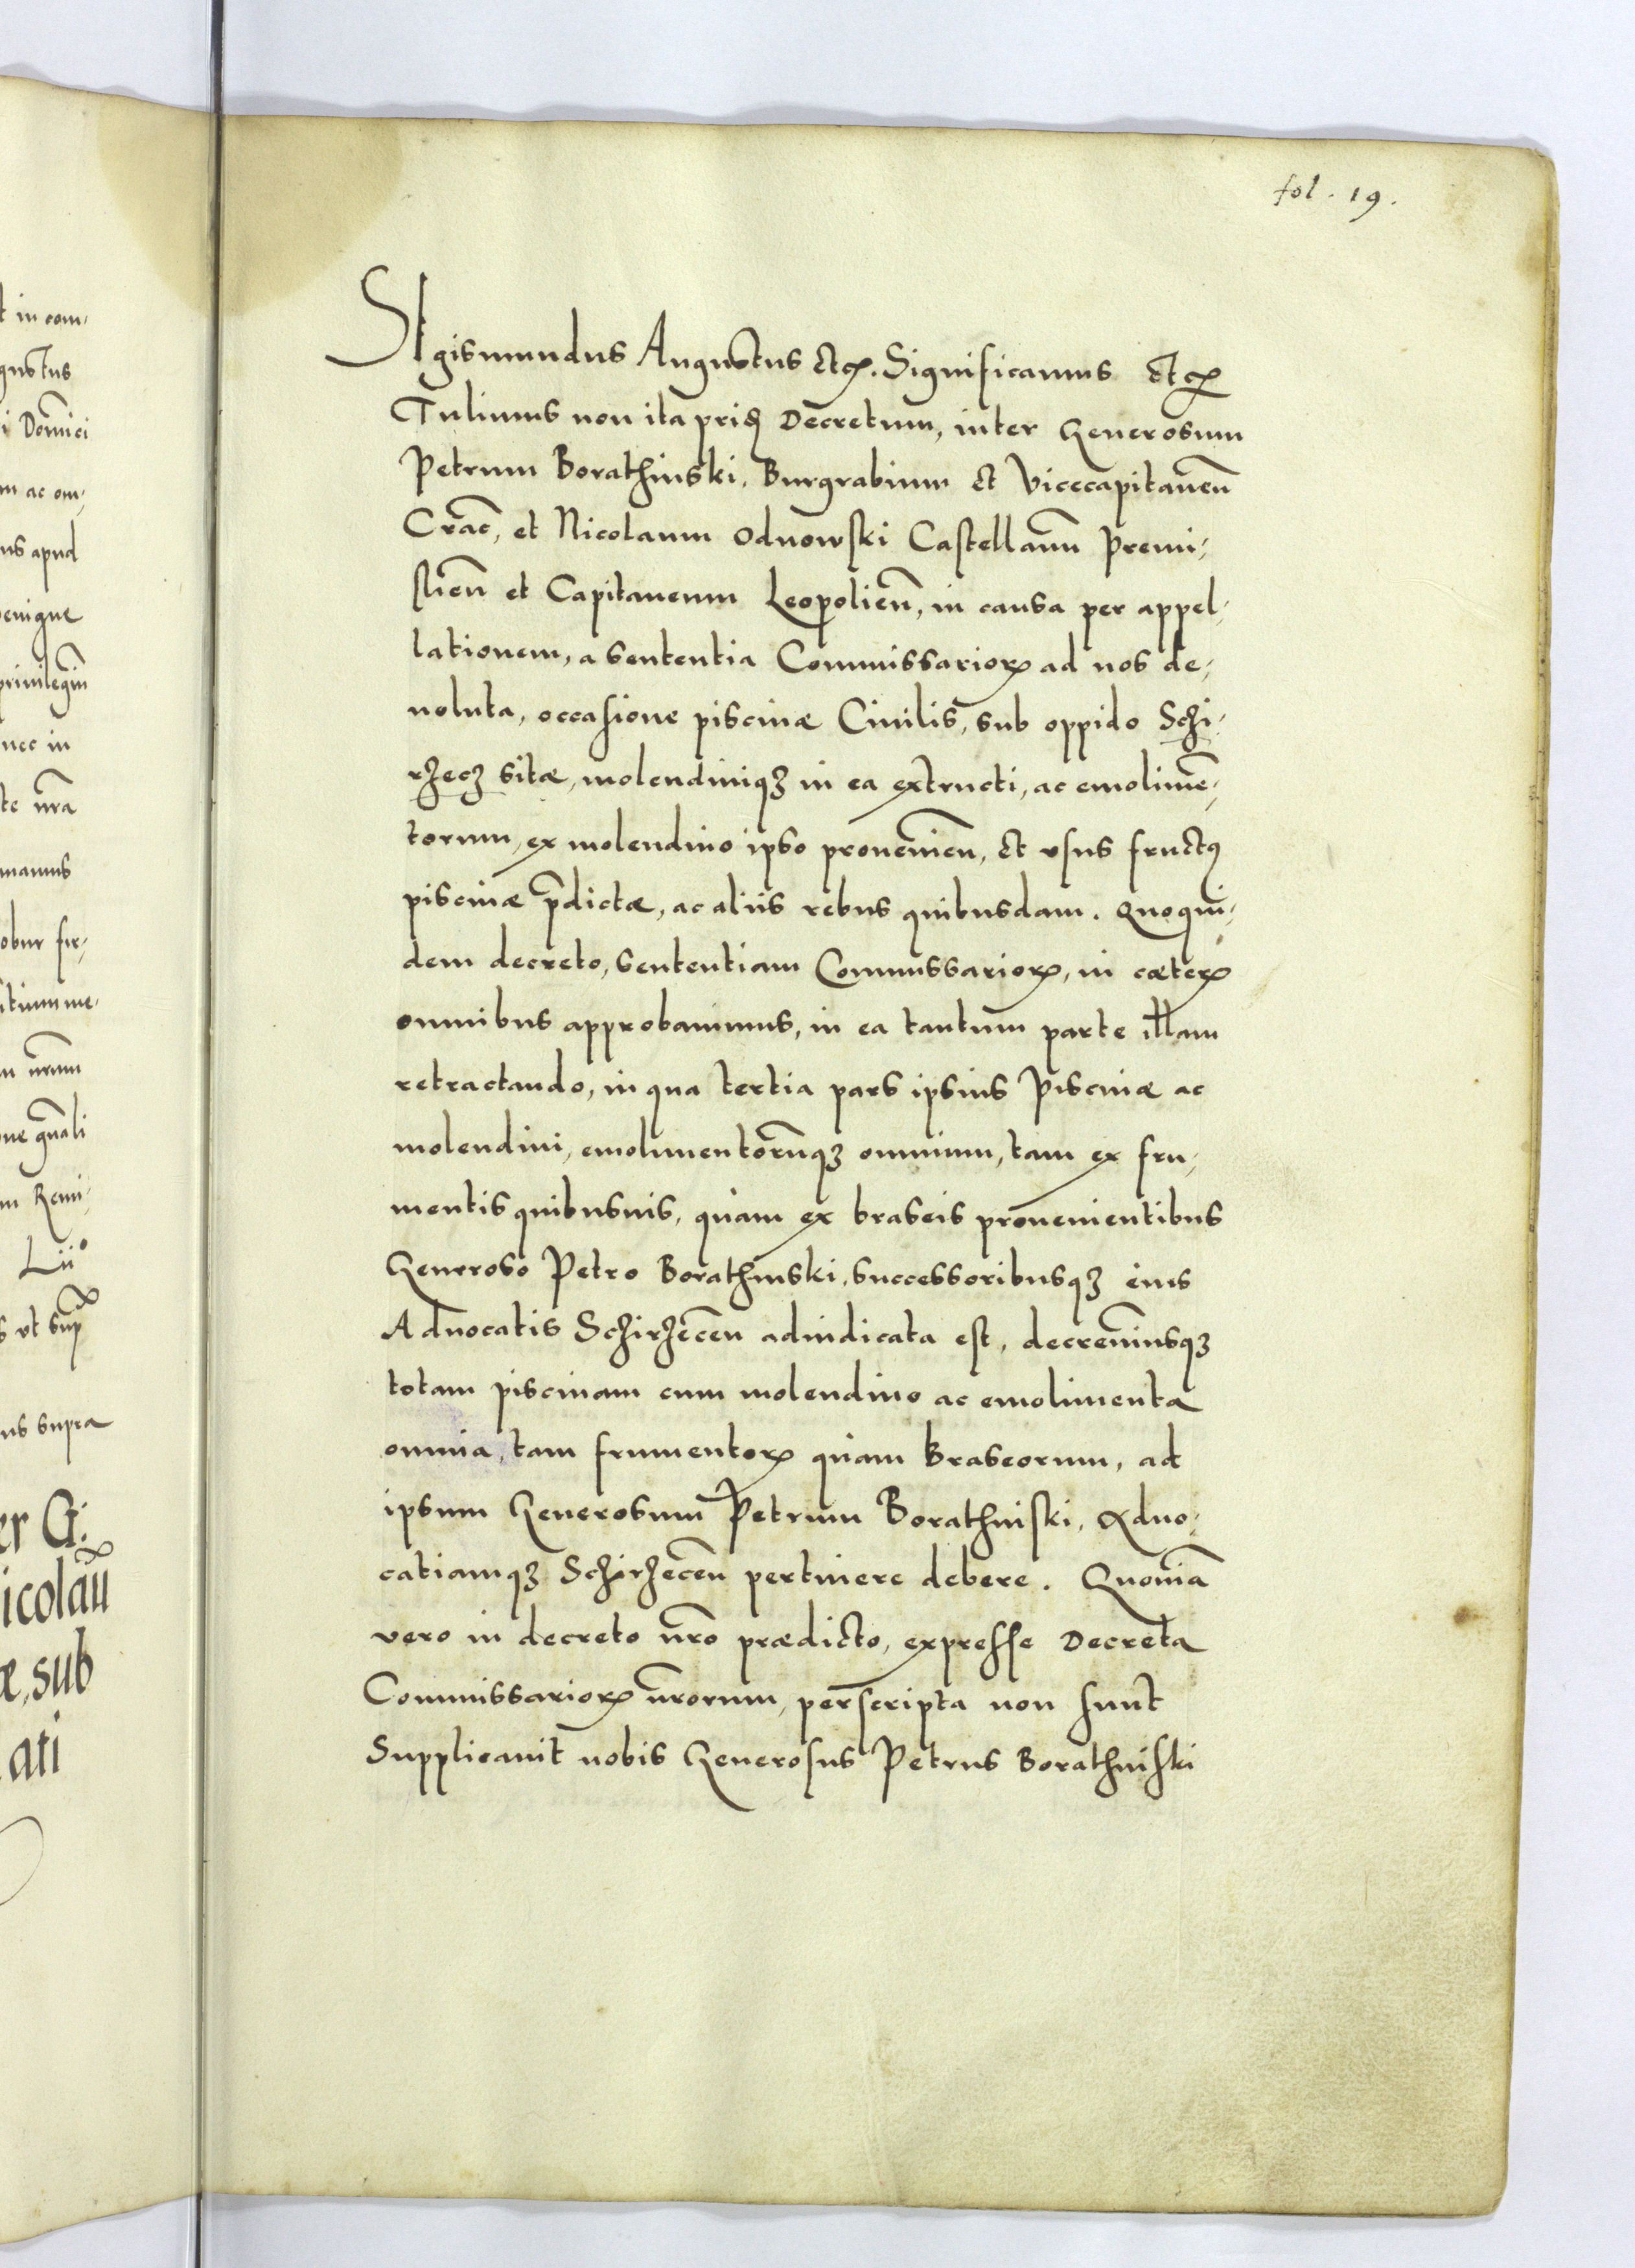 fol. 19.
SIgismundus Augustus etcꝝ. Significamus etcꝝ
Tulimus non ita priꝰ Decretum, inter Generosum
Petrum Borathinski, Burgrabium et Vicecapitaneū
Crac̄, et Nicolaum Odnowski Castellanū Premi-
slień et Capitaneum Leopolień, in causa per appel-
lationem, a sententia Commissarioꝝ ad nos de-
uoluta, occasione piscinæ Ciuilis, sub oppido Schi-
rzecz sitæ, molendiniqꝫ in ea extructi, ac emolimē-
torum, ex molendino ipso prouenień, et vsus fructꝰ
piscinæ p̄dictæ, ac aliis rebus quibusdam. Quoqui-
dem decreto, sententiam Commissarioꝝ, in cæteꝝ
omnibus approbauimus, in ea tantum parte illam
retractando, in qua tertia pars ipsius Piscinæ ac
molendini, emolimentorūqꝫ omnium, tam ex fru-
mentis quibusuis, quam ex braseis prouenientibus
Generoso Petro Borathinski, successoribusqꝫ eius
Aduocatis Schirzeceń adiudicata est, decreuimusqꝫ
totam piscinam cum molendino ac emolimenta
omnia, tam frumentoꝝ quam braseorum, ad
ipsum Generosum Petrum Borathinski, Aduo-
catiamqꝫ Schirzeceń pertinere debere. Quoniā
vero in decreto nr̄o prædicto, expresse Decreta
Commissarioꝝ nr̄orum, perscripta non sunt
Supplicauit nobis Generosus Petrus Borathinski
t in com-
gustus
i Domīci
m ac om-
us apud
enique
priuilegiū
nec in
te nr̄a
obur fir-
m nr̄um
ne gn̄ali
m Remi-
Lii°
s vt sup̄
us supra
er G.
icolaū
æ, sub
ati